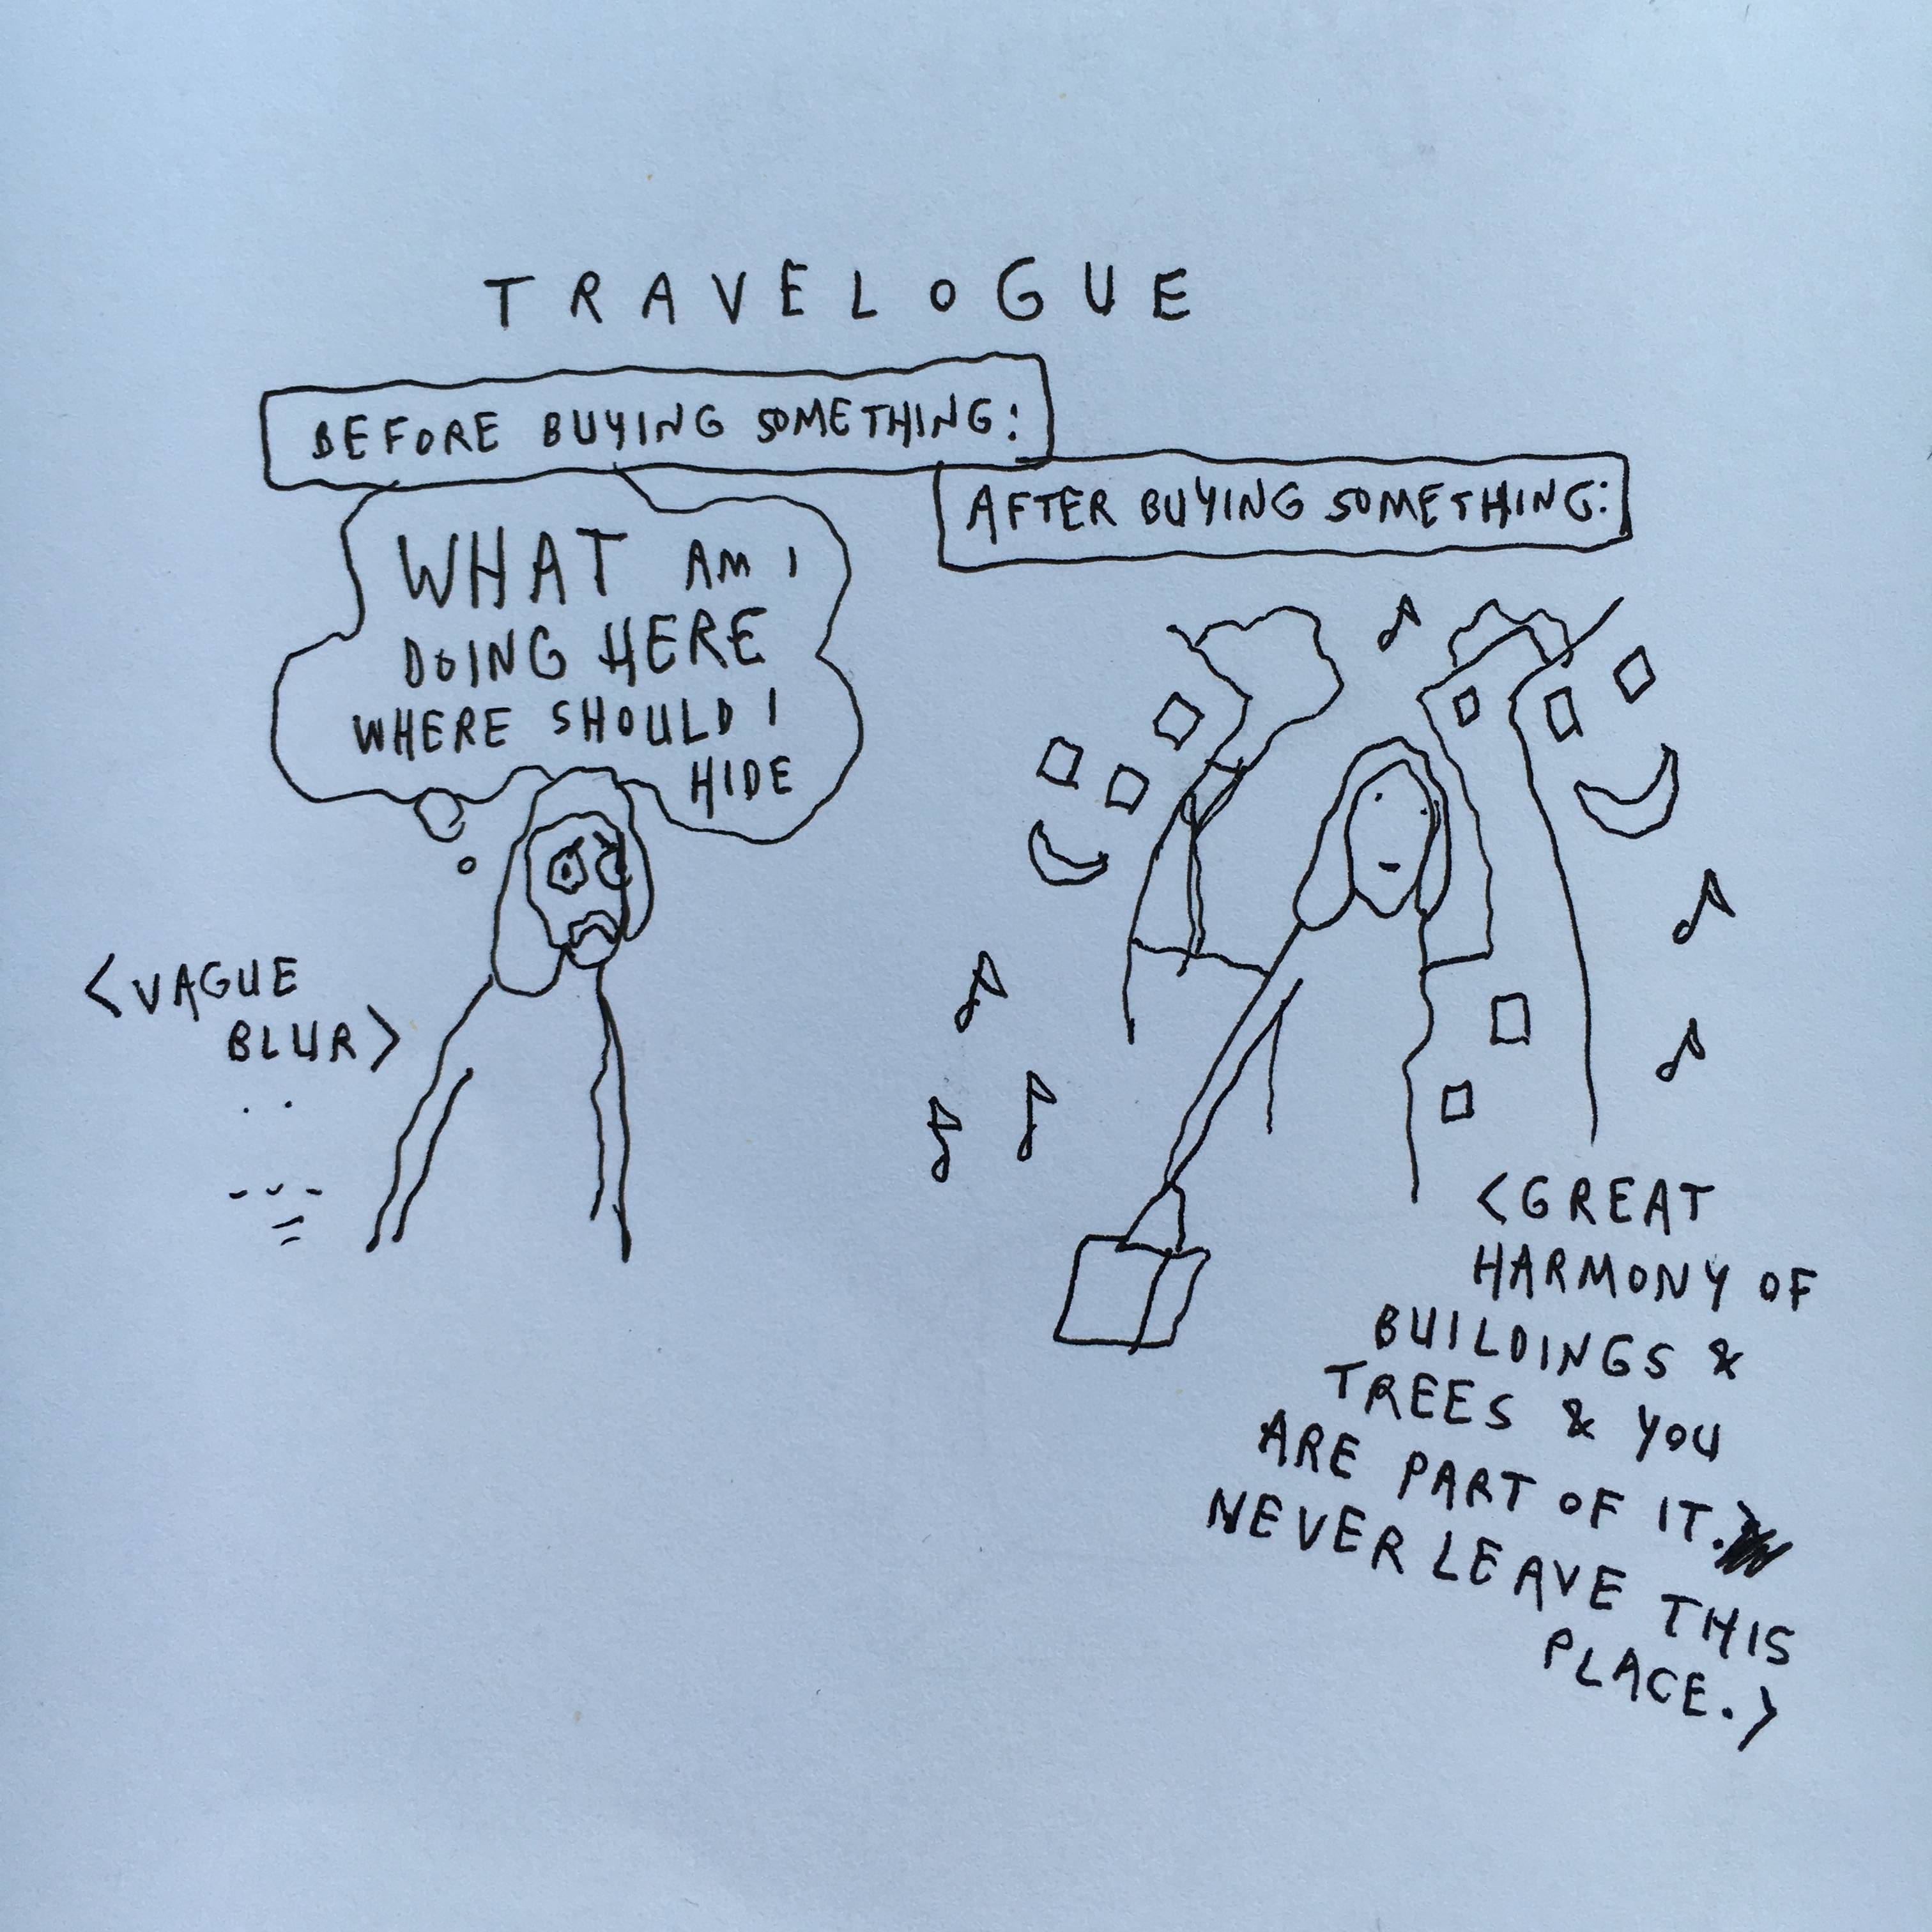 TRAVELOGUE
BEFORE BUYING SOMETHING:
WHAT AM I
DOING HERE
WHERE SHOULD I
HIDE
<VAGUE
BLUR>
AFTER BUYING SOMETHING:
<GREAT
HARMONY OF
BUILDINGS &
TREES & YOU
ARE PART OF IT.
NEVER LEAVE THIS
PLACE.>